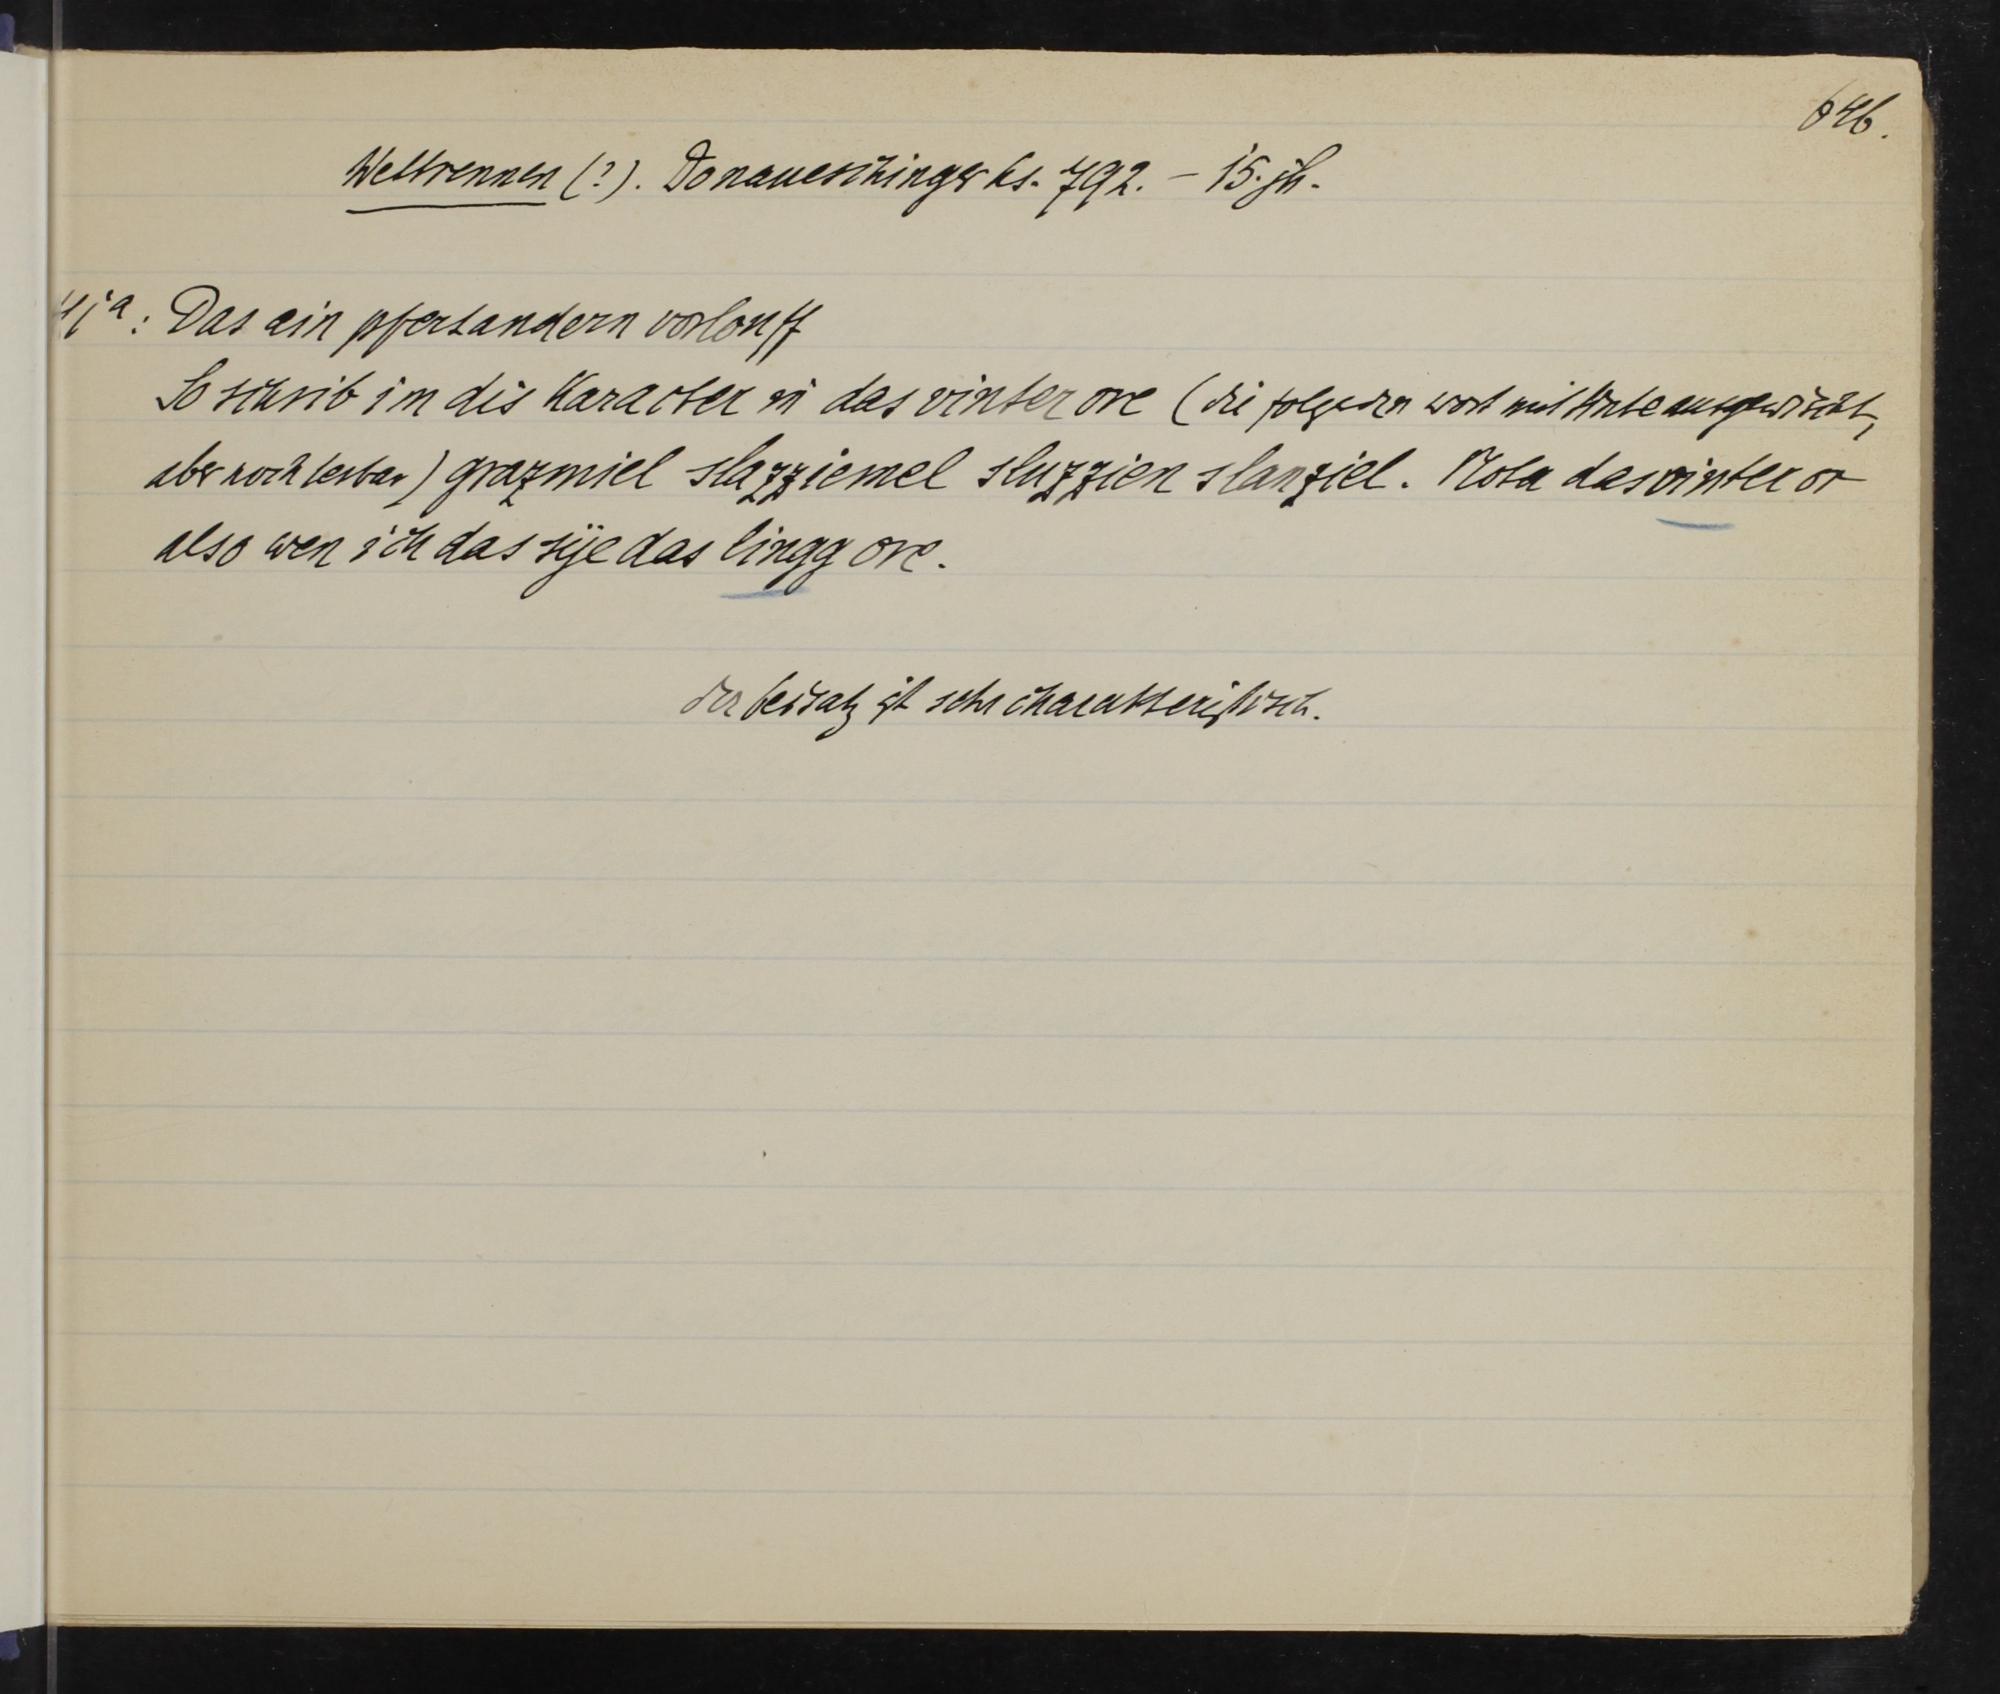 646.
Wettrennen (?). Donaueschinger hs. 792. – 15. jh.
41a: Das ein pfert andern vorlouff
So schrib im dis Karacter in das vinter ore (die folgenden wort mit tinte ausgewischt,
aber noch lesbar) grazmiel slazziemel sluzzien slanziel. Nota das vinter or
also wen ich das sÿe das lingg ore.
der beisatz ist sehr charakteristisch.